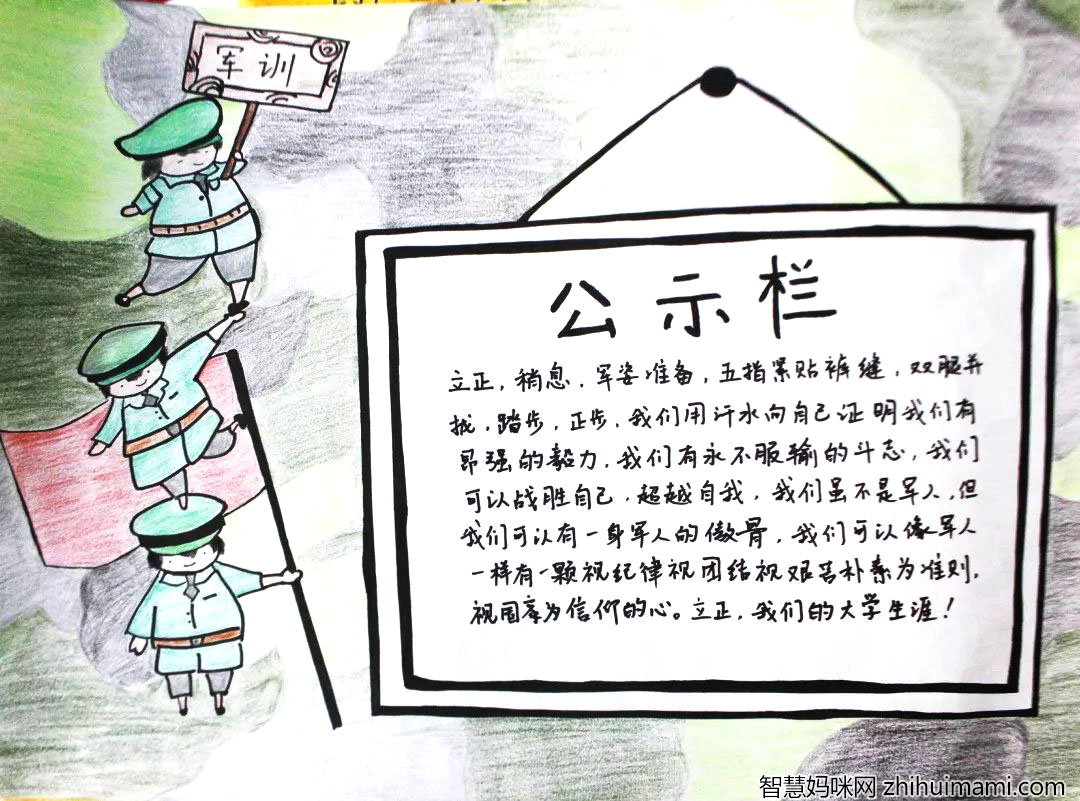 军训
公示栏
立正，稍息，军姿准备，五指紧贴裤缝，双腿并
拢，踏步，正步，我们用汗水向自己证明我们有
昂强的毅力，我们有永不服输的斗志，我们
可以战胜自己，超越自我，我们虽不是军人，但
我们可以有一身军人的傲骨，我们可以像军人
一样有一颗视纪律视团结视艰苦朴素为准则，
视国家为信仰的心。立正，我们的大学生涯！
智慧妈咪网 zhihuimami.com